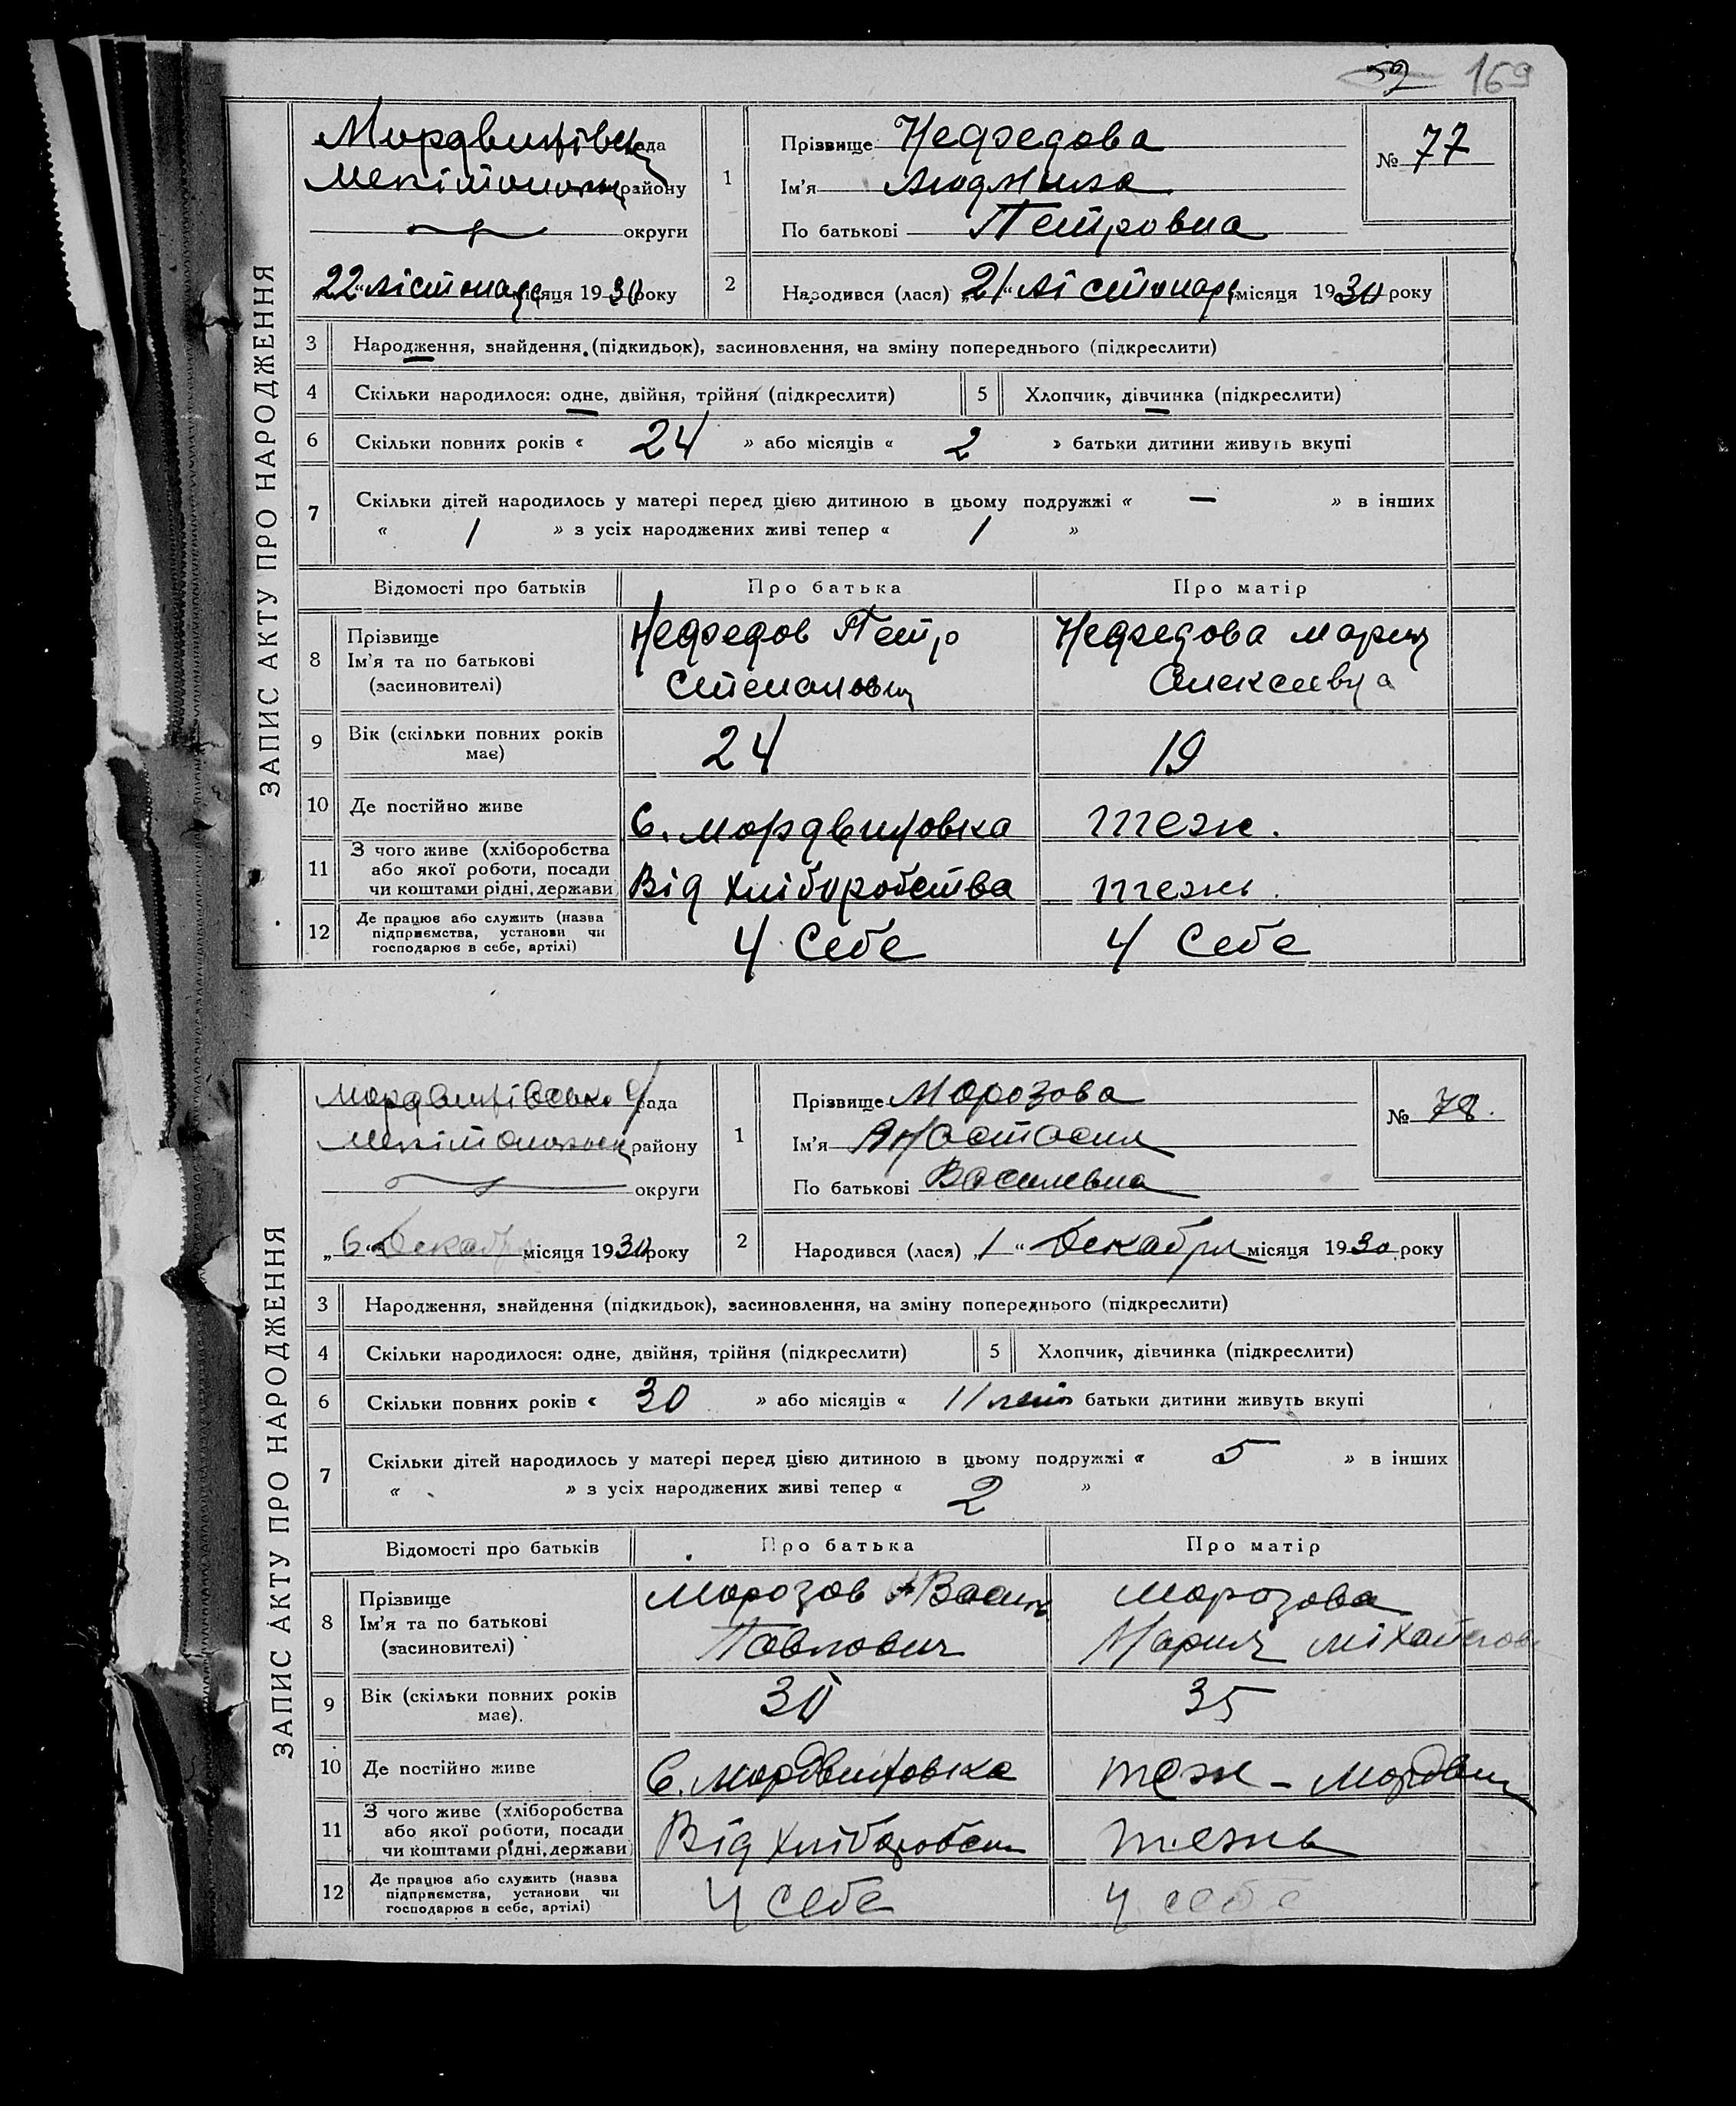 52 169
ЗАПИС АКТУ ПРО НАРОДЖЕННЯ
Мордвинівська рада
Мелітопольськ району
округи
„22“ лістопад місяця 1930 року
1
Прізвище
Ім'я Людмила
По батькові Петровна
№ 77
2
Народився (лася) „21“ лістопаря місяця 1930 року
3 Народження, знайдення (підкидьок), засиновлення, на зміну попереднього (підкреслити)
4 Скільки народилося: одне, двійня, трійня (підкреслити)
5 Хлопчик, дівчинка (підкреслити)
6 Скільки повних років « 24 » або місяців « 2 » батьки дитини живуть вкупі
7 Скільки дітей народилось у матері перед цією дитиною в цьому подружжі « — » в інших
« 1 » з усіх народжених живі тепер « 1 »
Відомості про батьків Про батька Про матір
8 Прізвище
Ім'я та по батькові
(засиновителі)
Петро
Степанович
Мария
Алексеевна
9 Вік (скільки повних років має) 24 19
10 Де постійно живе С. Мордвиновка теж.
11 З чого живе (хліборобства
або якої роботи, посади
чи коштами рідні, держави
Від хліборобства теж.
12 Де працює або служить (назва
підприємства, установи чи
господарює в себе, артілі)
У себе У себе
ЗАПИС АКТУ ПРО НАРОДЖЕННЯ
Мордвинівська рада
Мелітопольськ району
округи
„6“ Декаб місяця 1930 року
1
Прізвище Морозова
Ім'я Анастасия
По батькові Василевна
№ 78.
2
Народився (лася) „1“ Декабря місяця 1930 року
3 Народження, знайдення (підкидьок), засиновлення, на зміну попереднього (підкреслити)
4 Скільки народилося: одне, двійня, трійня (підкреслити)
5 Хлопчик, дівчинка (підкреслити)
6 Скільки повних років « 30 » або місяців « 11 лет батьки дитини живуть вкупі
7 Скільки дітей народилось у матері перед цією дитиною в цьому подружжі « 5 » в інших
« » з усіх народжених живі тепер « 2 »
Відомості про батьків Про батька Про матір
8 Прізвище
Ім'я та по батькові
(засиновителі)
Морозов Васил
Павлович
Морозова
Мария Міхайлов
9 Вік (скільки повних років має). 30 35
10 Де постійно живе С. Мордвиновка теж - Мордвин
11 З чого живе (хліборобства
або якої роботи, посади
чи коштами рідні, держави
Від хліборобст тежь
12 Де працює або служить (назва
підприємства, установи чи
господарює в себе, артілі)
У себе У себе